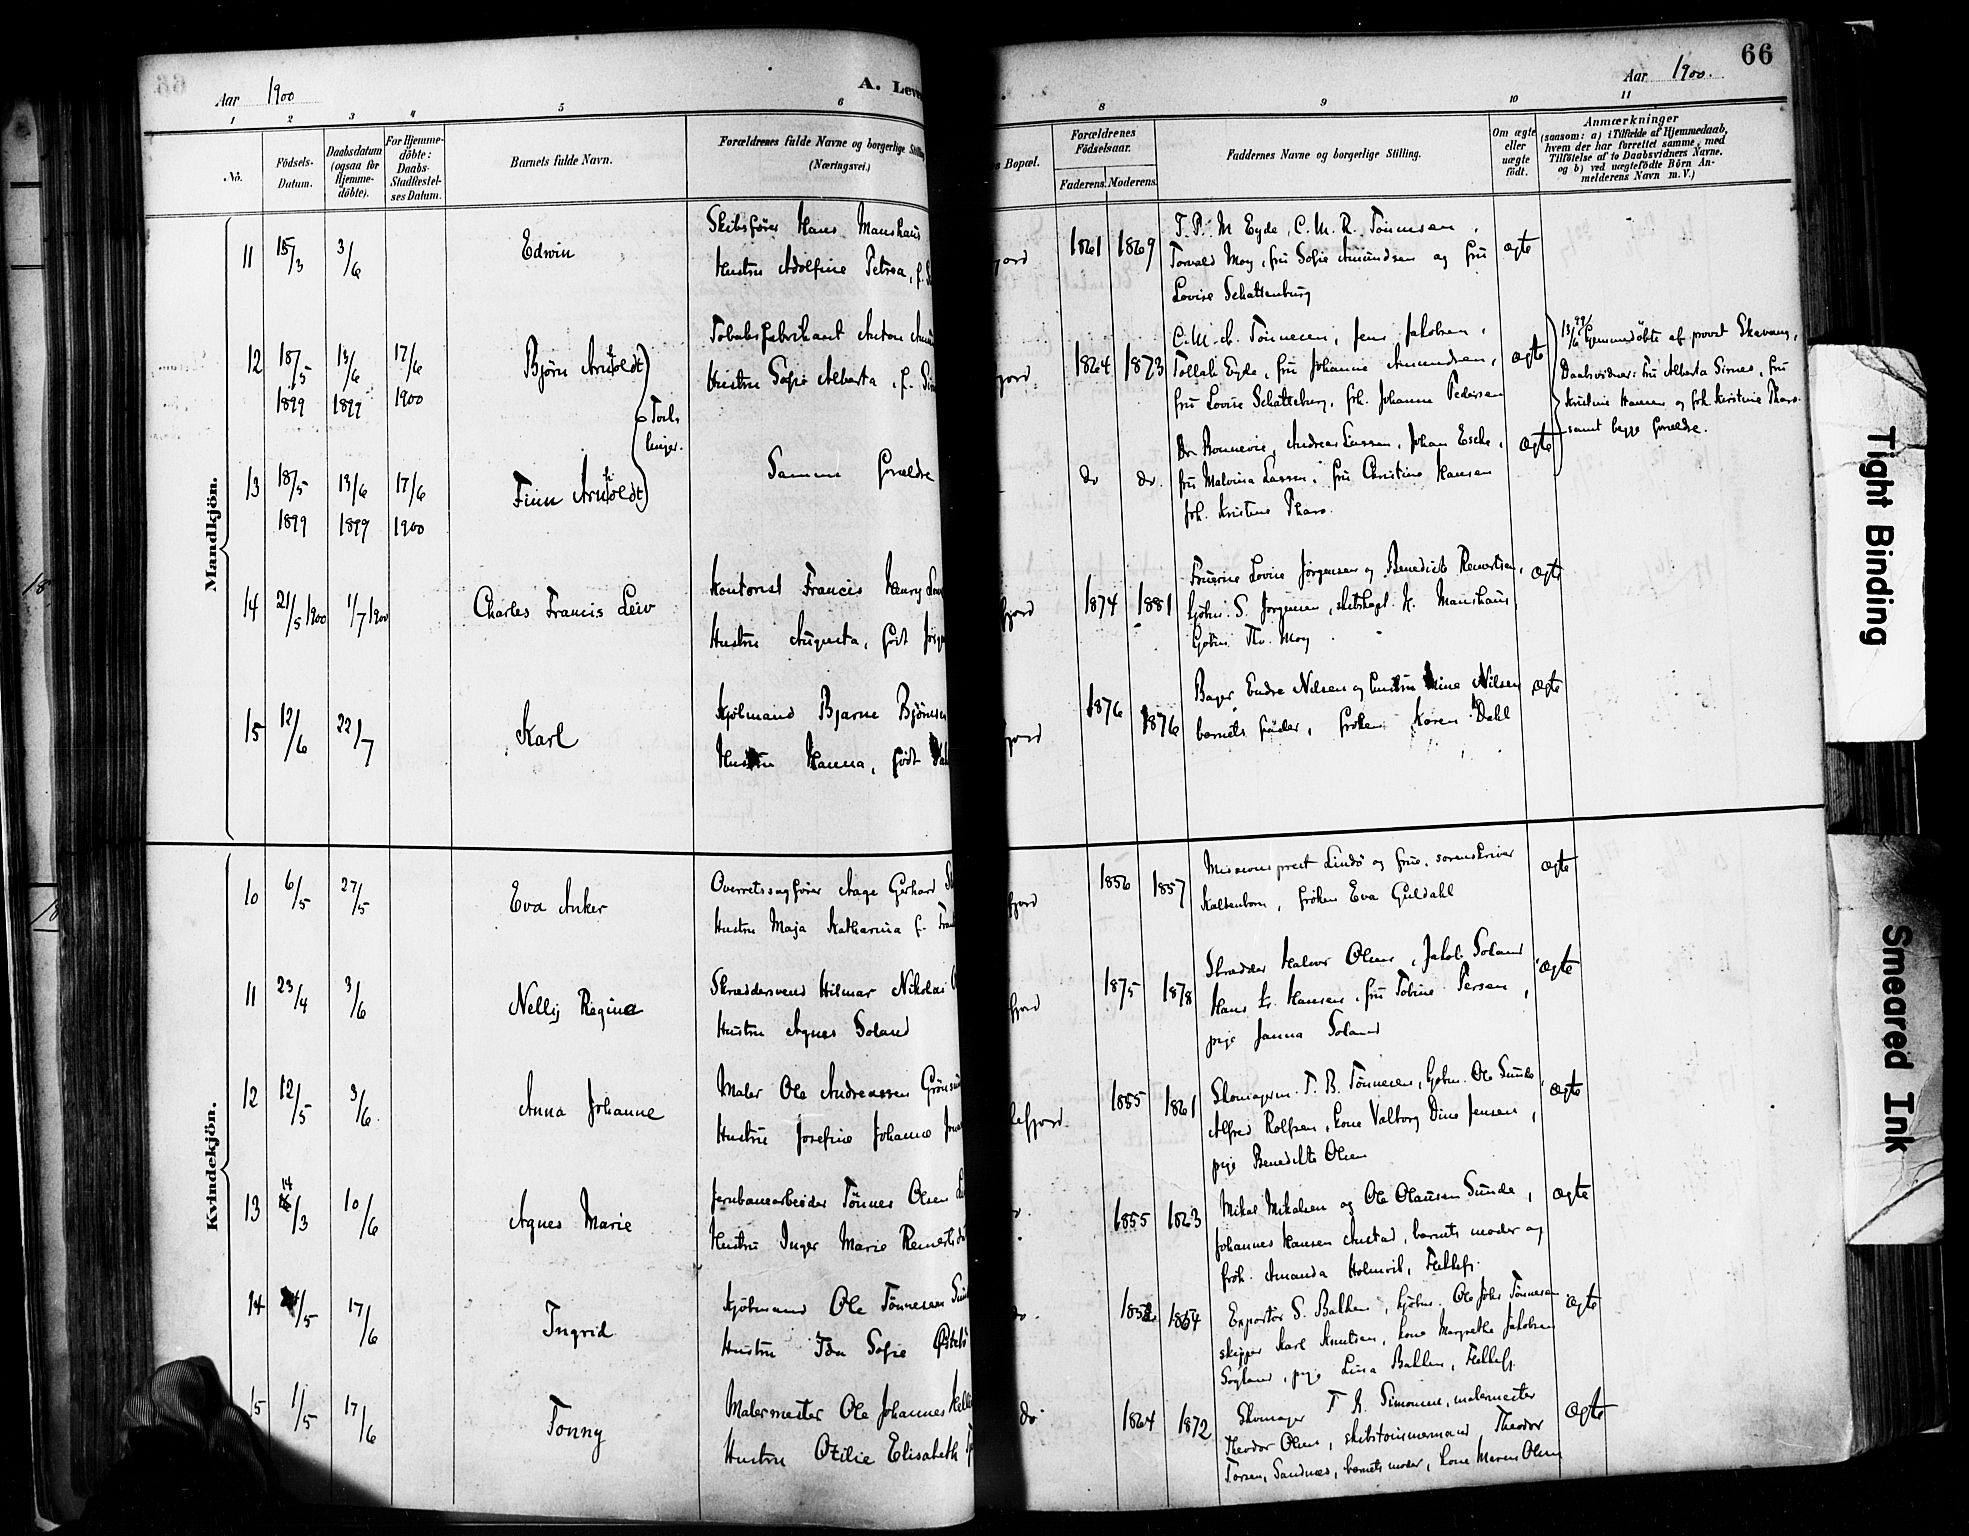 66
Aar 1900
A. Leve
Aar 1900.
1 2 3 4 5 6 8 9 10 11
No.
Födsels-Datum.
Daabsdatum (ogsaa for Hjemmedöbte).
For Hjemmedöbte: Daabs-Stadfæstelses Datum.
Barnets fulde Navn.
Forældrenes fulde Navne og borgerlige Stilling (Næringsvei.)
s Bopæl.
Forældrenes Födselsaar.
Faderens. Moderens.
Faddernes Navne og borgerlige Stilling.
Om ægte eller uægte födt.
Anmærkninger
(saasom: a) i Tilfælde af Hjemmedaab,
hvem der har forrettet samme, med
Tilföielse af to Daabsvidners Navne.
og b) ved uægtefödte Börn An-
melderens Navn m. V.)
Mandkjön.
11 15/3 3/6 Edwin
Skibsfører Hans Manshaus
Hustru Adolfine Petrea, f.
fjord 1861 1869
T. P. M. Eyde, C. M. R. Tönnesen,
Torvald Moy, fru Sofie Amundsen og fru
Lovise Schattenburg
ægte
12 18/5 1899 13/6 1899 17/6 1900 Bjørn Arnholdt
Tvillinger.
Tobaksfabrikant Anton
Hustru Sofie Alberta, f.
fjord. 1864 1873
C. M. Tönnesen, Jens Jakobsen,
Tollak Eyde, fru Johanne Amundsen,
fru Lovise Schatteburg, frk. Johanne Pedersen
ægte
13/6 99 hjemmedöbte af provst Skavang,
Daabsvidner: fru Alberta Sirnes, fru
Kristine Hansen og frk. Kristine Tharo.
samt begge forældre.
13 18/5 1899 13/6 1899 17/6 1900 Finn Arnholdt
Samme forældre
do do.
Dr. Bonnevie, Andreas Lassen, Johan Esche,
fru Malvina Lassen, fru Christine Hansen
frk. Kristine Tharo.
ægte
14 21/5 1900 1/7 1900 Charles Francis Leiv
Kontorist Francis Henry
Hustru Augusta, født
fjord 1874 1881
Fruerne Lovise Jørgensen og Benedicte
kjøbm. S. Jørgensen, skibskapt. H. Manshaus
Kjøbm. Th. Moy
ægte
15 12/6 22/7 Karl
Kjølmand Bjarne
Hustru Hanna, født
fjord 1876 1876
Bager Endre Nilsen og hustru Mine Nilsen
barnets fader, frøken Karen Dahl
ægte
Kvindekjön.
10 6/5 27/5 Eva Anker
Overretssagfører Aage Gerhard
Hustru Maja Katharina f.
fjord 1856 1857
Missionsprest Lindö og frue, sorenskriver
Kaltenborn, frøken Eva Guldahl
ægte
11 23/4 3/6 Nelly Regine
Skræddersvend Hilmar Nikolai
Hustru Agnes Soland
fjord 1875 1878
Skrædder Halvor Olsen, Jakob Soland
Hans Kr. Hansen, fru Tobine Tersen,
pige Janna Soland
ægte
12 12/5 3/6. Anna Johanne
Maler Ole Andreassen
Hustru Josefine Johanne
lefjord. 1855 1861
Skomagerm. T. B. Tönnesen, kjøbm. Ole Sunde,
Alfred Rolfsen, kone Valborg Dine Jensen,
pige Benedikte Olsen
ægte
13 14/3 10/6 Agnes Marie
Jernbanearbeider Tønnes Olsen
Hustru Inger Marie
1855 1863
Mikal Mikalsen og Ole Olaüsen Sunde,
Johannes Hansen Austad, barnets moder og
frøk. Amanda Holmvik, Flekkefj.
ægte
14 /5 17/6 Ingrid
Kjøbmand Ole Tønnesen
Hustru Ida Sofie
do. 1852 1864
Exportör S. Bakken, kjøbm. Ole Johs Tønnesen
skipper Karl Knutsen, kone Margrethe Jakobsen
Sogland, pige Lina Bakken, Flekkefj.
ægte
15 1/5 17/6 Tonny
Malermester Ole Johannes
Hustru Otilie Elisabeth
do. 1864 1872
Skomager T. R. Simonsen, malermester
Theodor Olsen, skibstømmermand Theodor
Torsen, Sandnes, barnets moder, kone Maren Olsen
ægte
66
Tight Binding
Smeared Ink